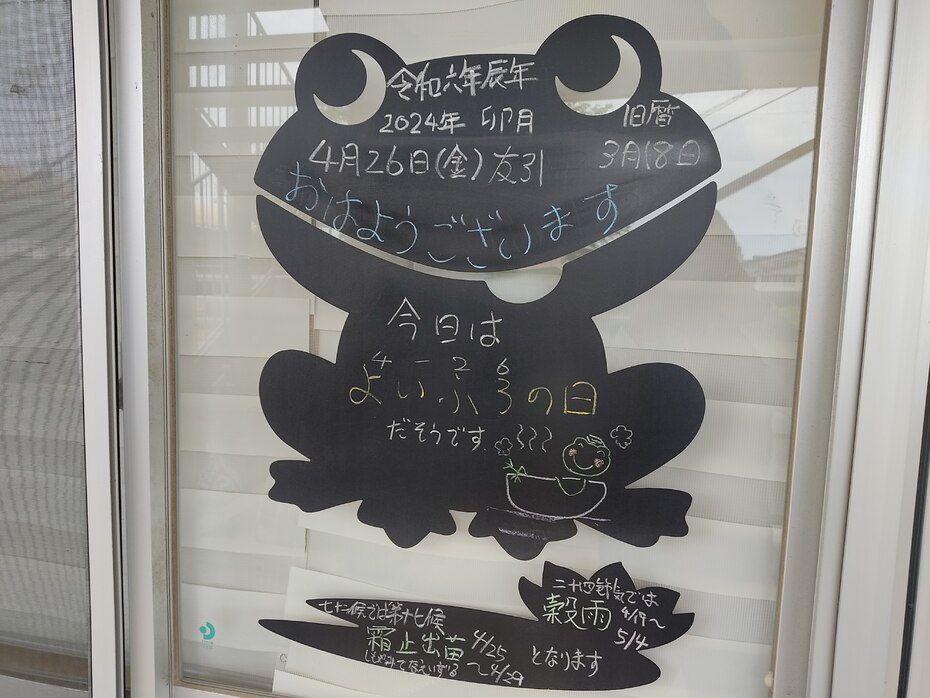 令和六年辰年
2024年 卯月
旧暦
4月26日(金)友引
3月18日
おはようございます
今日は
4 一 2 6
よいふろの日
だそうです
二十四節気では
穀雨 4/19〜
5/4
七十二候では第十七候
霜止出苗 4/25
しもやみてなえいずる 〜4/29
となります